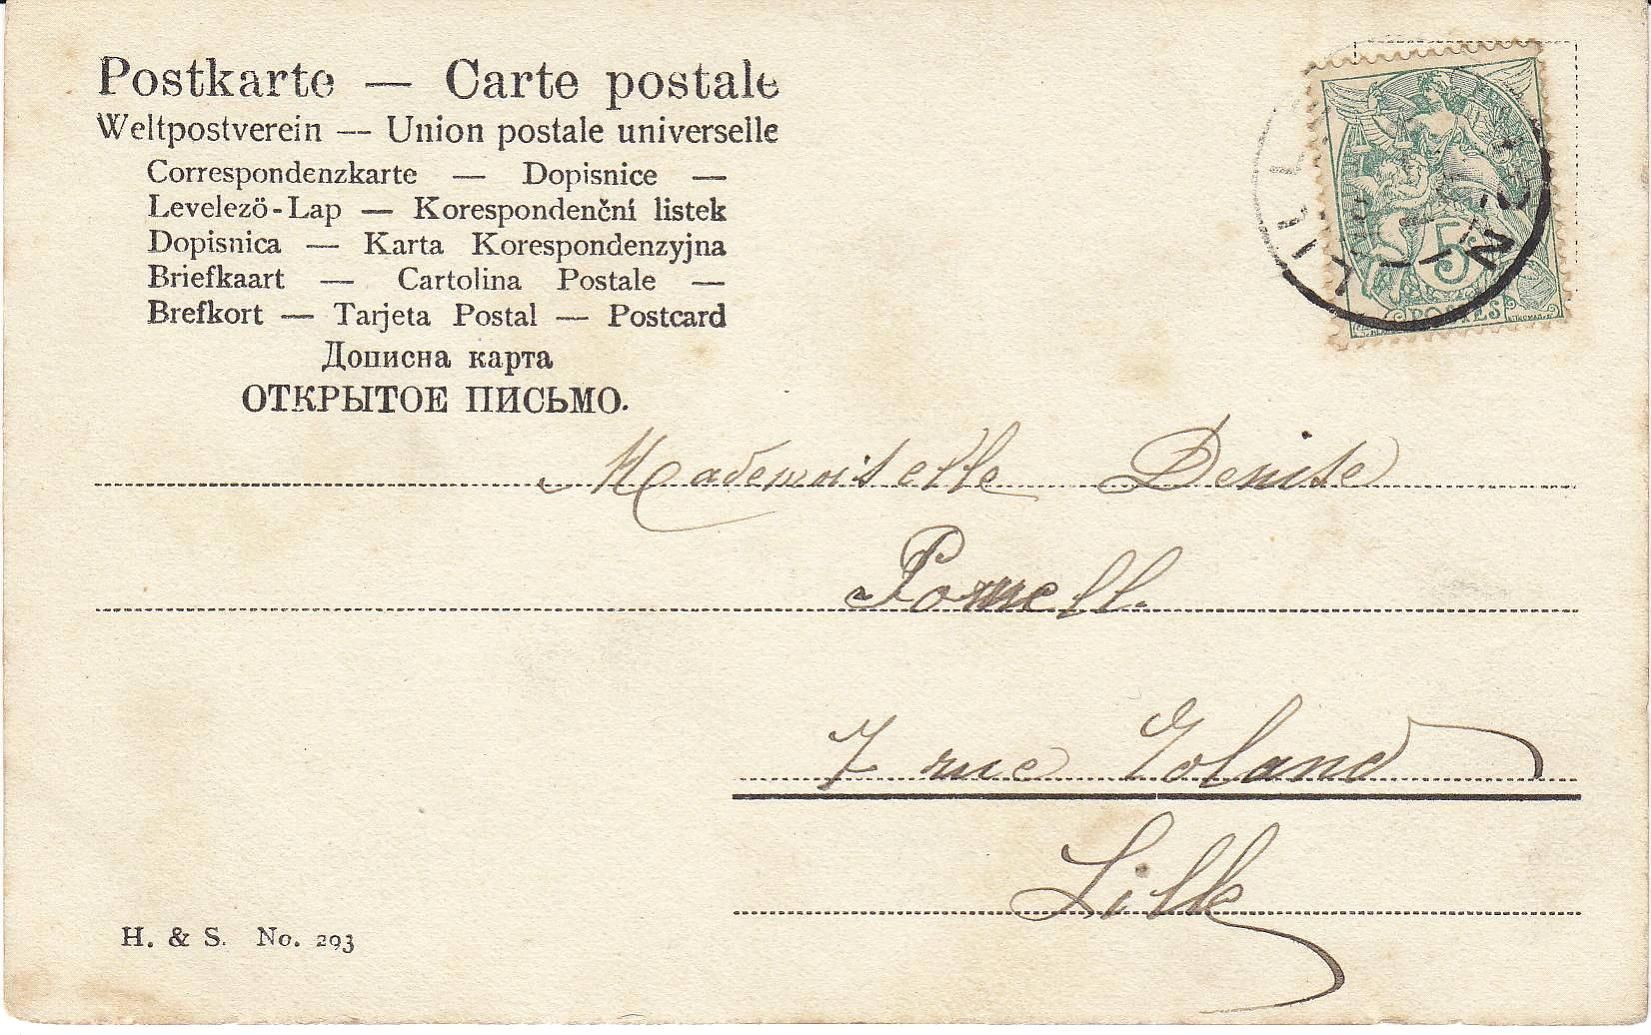 Postkarte — Carte postale
Weltpostverein — Union postale universelle
Correspondenzkarte — Dopisnice —
Levelező-Lap — Korespondenční listek
Dopisnica — Karta Korespondenzyjna
Briefkaart — Cartolina Postale —
Brefkort — Tarjeta Postal — Postcard
Дописна карта
ОТКРЫТОЕ ПИСЬМО.
5
POSTES
LILLE
Mademoiselle Denise
7 rue Yoland
Lille
H. & S. No. 293